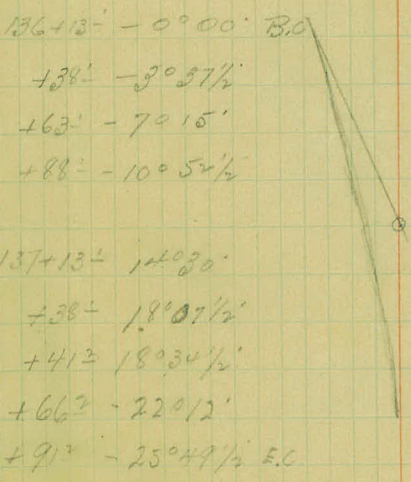 136+13⁻ - 0° 00' B.C
+38⁻ - 3° 37½
+63⁻ - 7° 15'
+88⁻ - 10° 52½
137+13⁻ 14° 30'
+38⁻ 18° 07½'
+41² 18° 34½'
+66² - 22° 12'
+91² - 25° 49½ E.C.